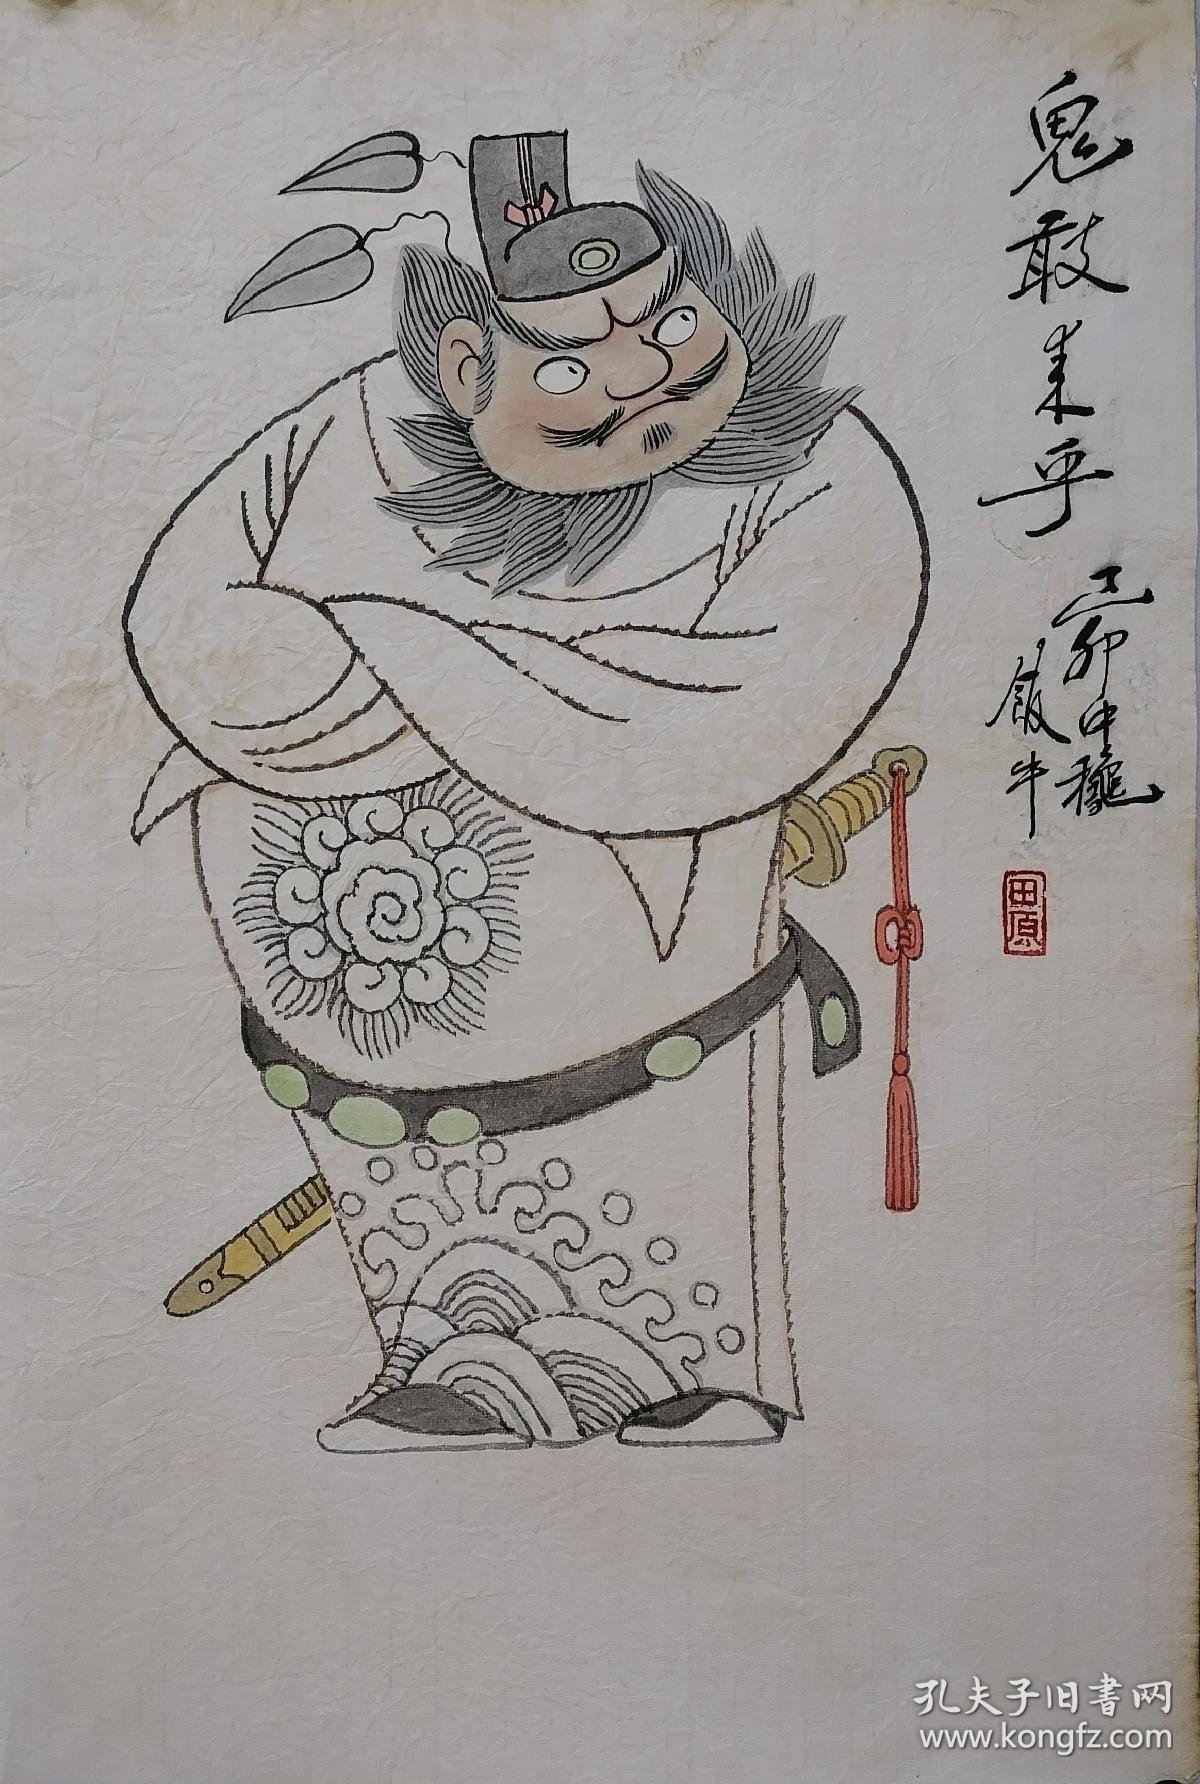 鬼敢来乎
己卯中龝
飯牛
田原
孔夫子旧書网
www.kongfz.com